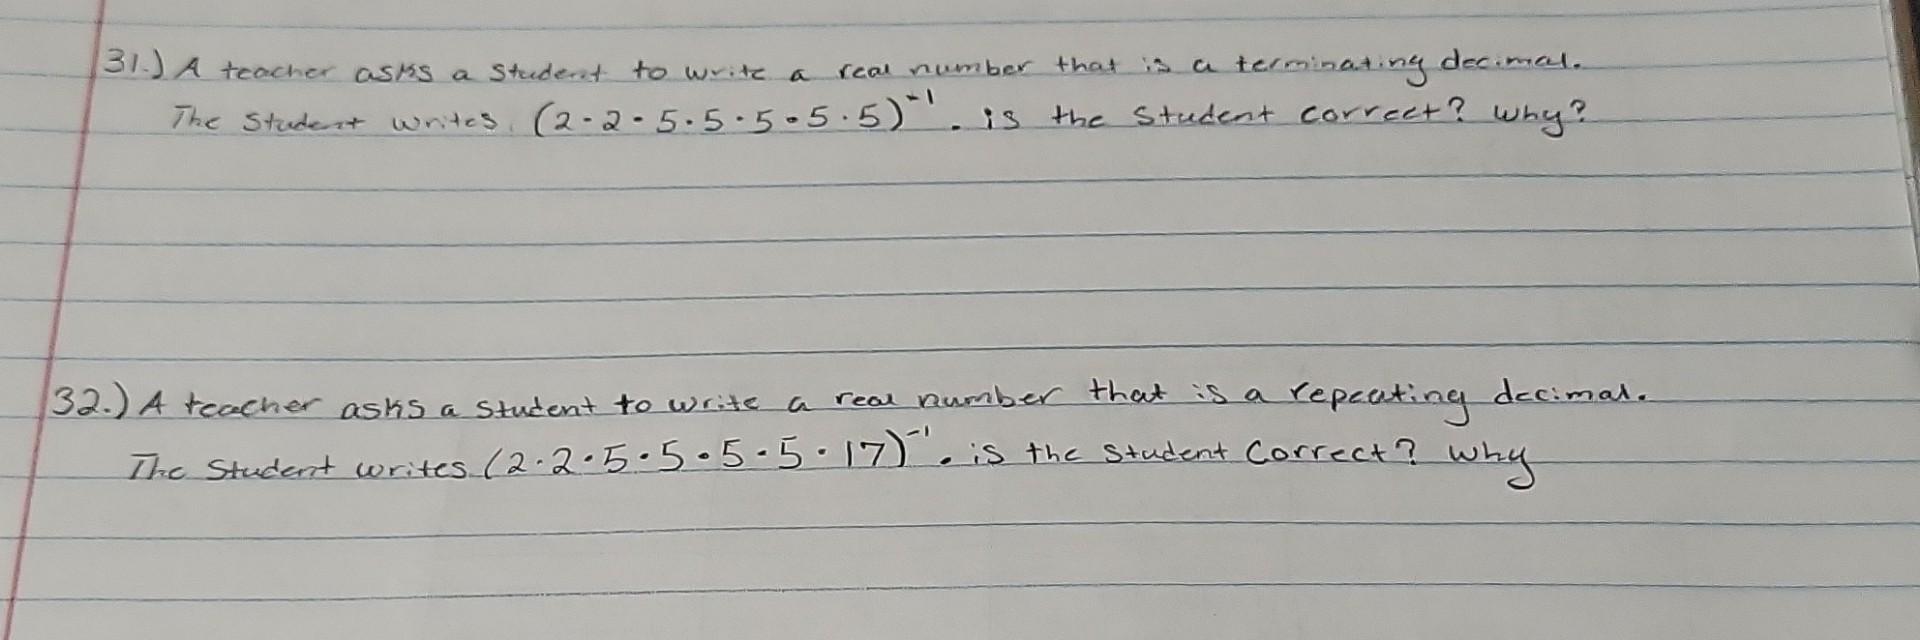 31.) A teacher asks a student to write a real number that is a terminating decimal.
The student writes (2·2·5·5·5·5·5)⁻¹. is the student correct? why?
32.) A teacher asks a student to write a real number that is a repeating decimal.
The student writes (2·2·5·5·5·5·17)⁻¹. is the student correct? why